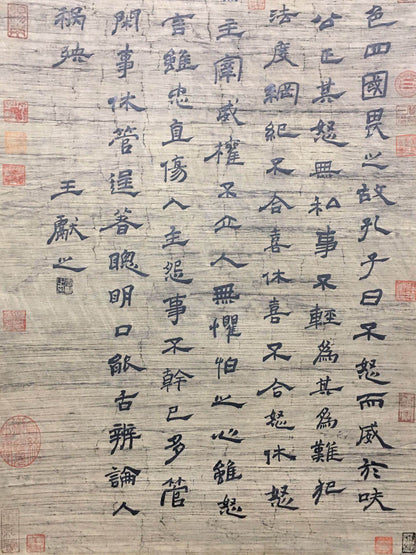 色四國畏之故孔子曰不怒而威於
公正其怒無私事不輕為其為難犯
法度綱紀不合喜休喜不合怒休怒
主威權不立人無懼怕之心雖怒
言雖忠直傷人主怨事不幹己多管
閑事休管逞著聰明口能舌辨論人
禍殃
王獻之